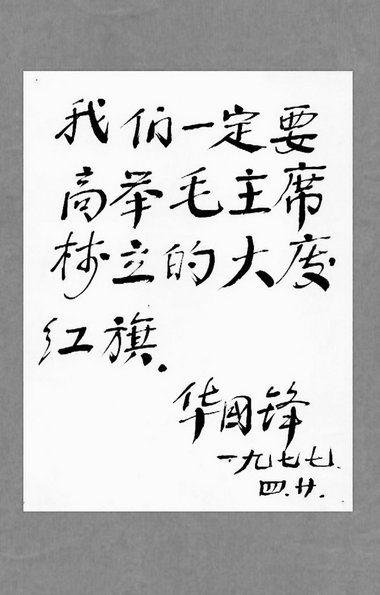 我们一定要
高举毛主席
树立的大庆
红旗.
华国锋
一九七七.
四.廿.